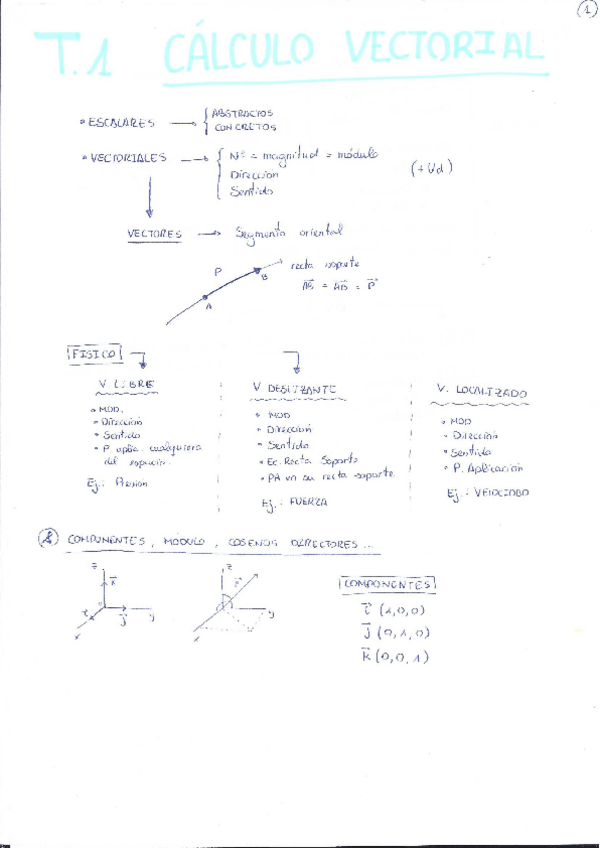 1
T.1 CÁLCULO VECTORIAL
• ESCALARES → { ABSTRACTOS
CONCRETOS
• VECTORIALES → { Nº = magnitud = módulo
Dirección
Sentido
(+Ud)
VECTORES → Segmento oriental
P recta soporte
A B AB = AB = P
FISICO
V LIBRE
• MOD.
• Dirección
• Sentido
• P aplic. cualquiera
del espacio.
Ej.: Presión
V DESLIZANTE
• MOD
• Dirección
• Sentido
• Ec. Recta Soporte
• PA en su recta soporte
Ej.: FUERZA
V. LOCALIZADO
• MOD
• Dirección
• Sentido
• P. Aplicación
Ej.: VELOCIDAD
COMPONENTES, MÓDULO, COSENOS DIRECTORES...
z k i j y x
z r y x
COMPONENTES
i (1,0,0)
j (0,1,0)
k (0,0,1)